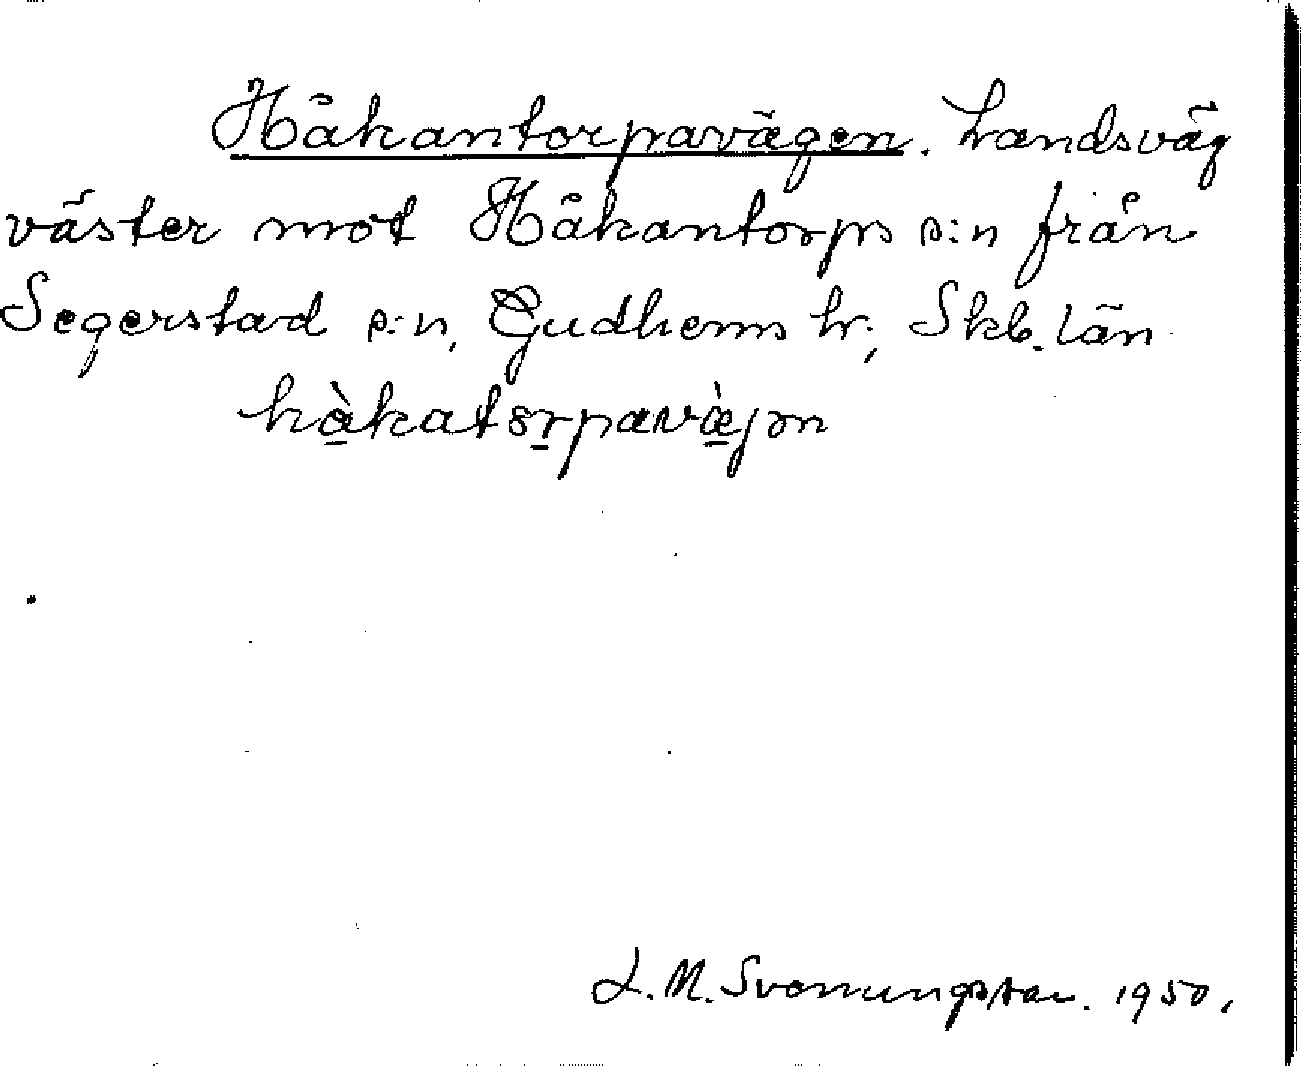 Håkantorpavägen. Landsväg
väster mot Håkantorps s:n från
Segerstad s:n, Gudhems hr, Skb. län
L. M. Svenungsson. 1950.